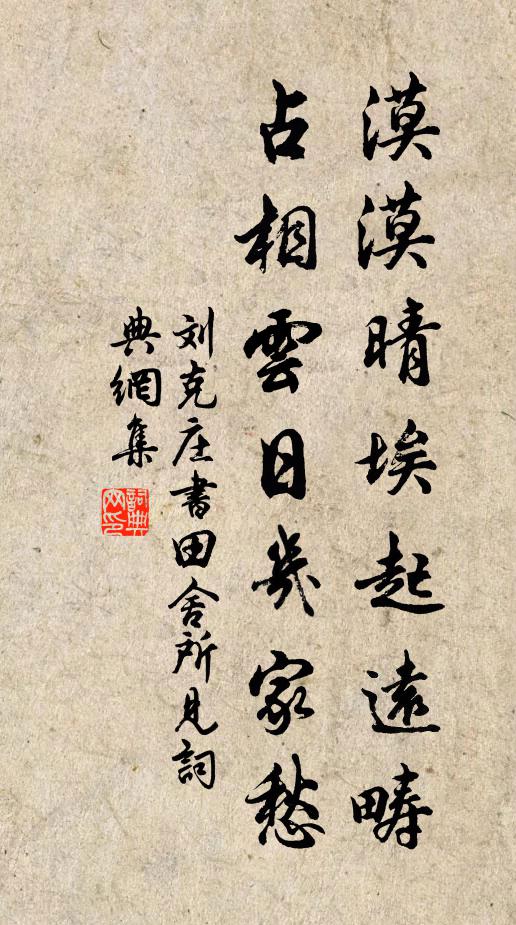 漠漠晴埃起遠疇
占相雲日幾家愁
刘克庄書田舍所見詞
典網集
詞典网印